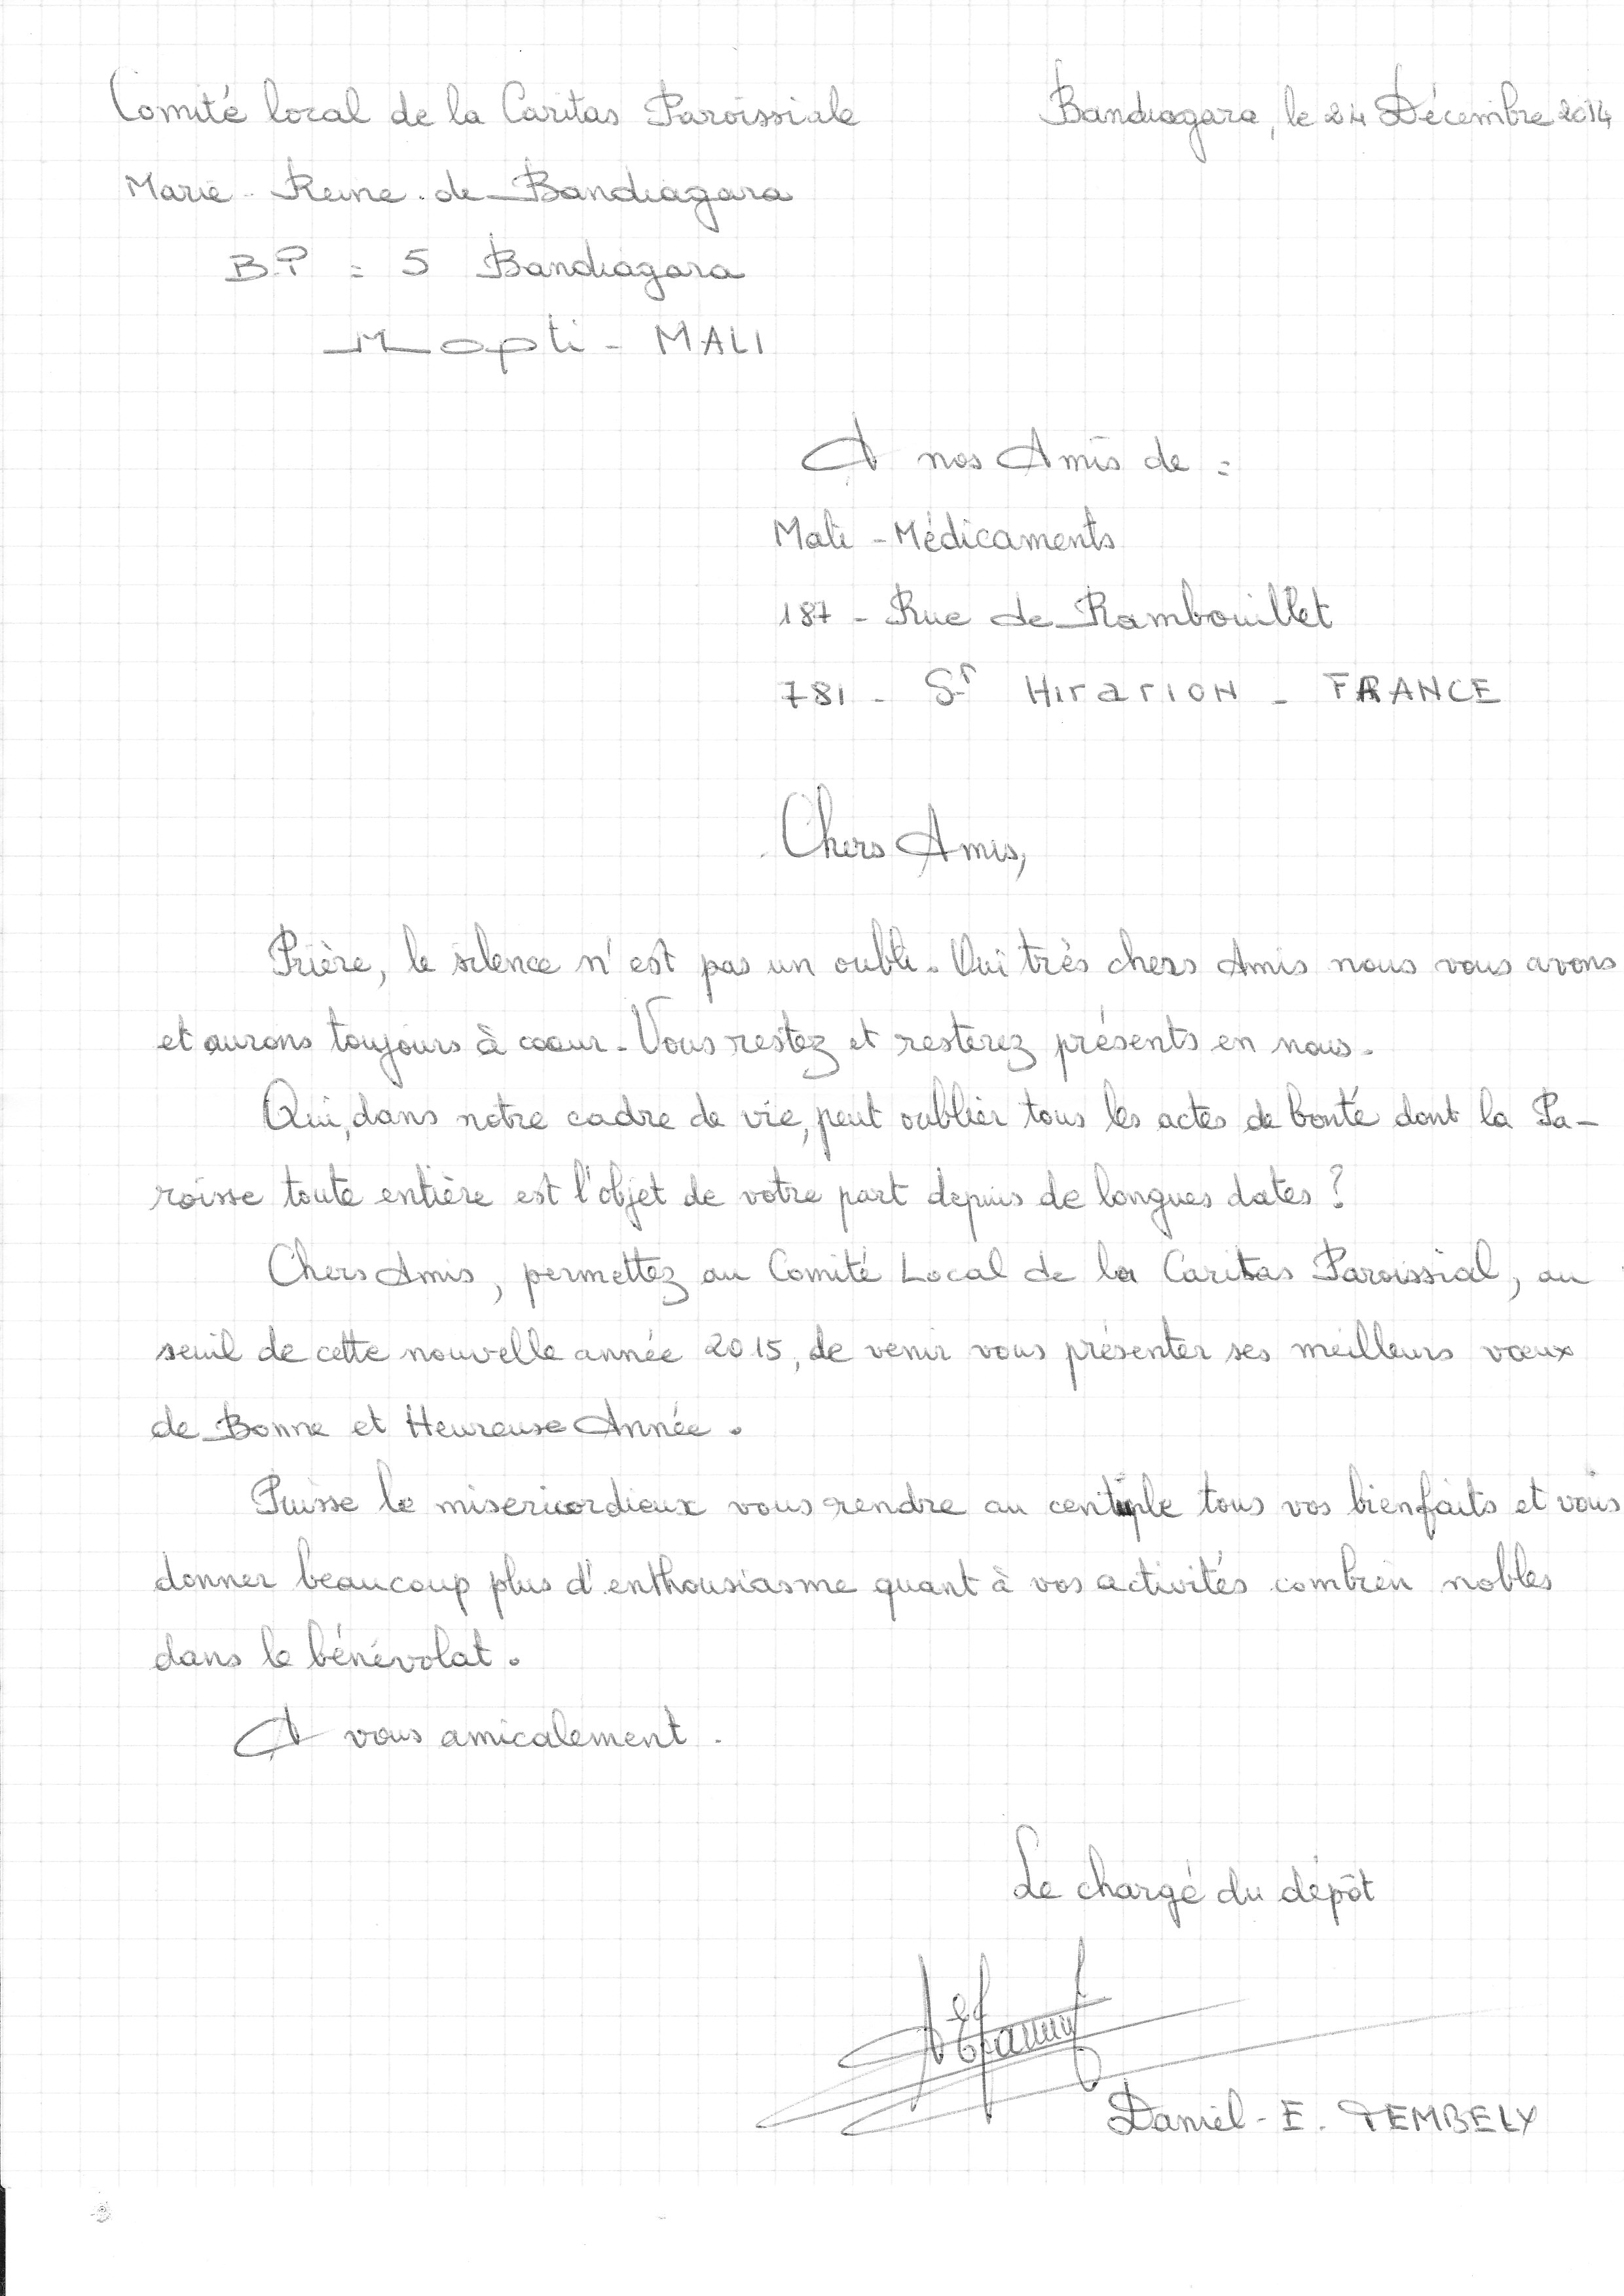 Comité local de la Caritas Paroissiale Bandiagara, le 24 Décembre 2014
Marie - Reine - de Bandiagara
B.P : 5 Bandiagara
Mopti - MALI
A nos Amis de :
Mali - Médicaments
187 - Rue de Rambouillet
781 - St Hirarion - FRANCE
Chers Amis,
Prière, le silence n'est pas un oubli. Oui très chers Amis nous vous avons
et aurons toujours à coeur. Vous restez et resterez présents en nous.
Qui, dans notre cadre de vie, peut oublier tous les actes de bonté dont la Pa-
roisse toute entière est l'objet de votre part depuis de longues dates ?
Chers Amis, permettez au Comité Local de la Caritas Paroissial, au
seuil de cette nouvelle année 2015, de venir vous présenter ses meilleurs vœux
de Bonne et Heureuse Année.
Puisse le misericordieux vous rendre au centuple tous vos bienfaits et vous
donner beaucoup plus d'enthousiasme quant à vos activités combien nobles
dans le bénévolat.
A vous amicalement.
Le chargé du dépôt
Daniel - E. TEMBELY